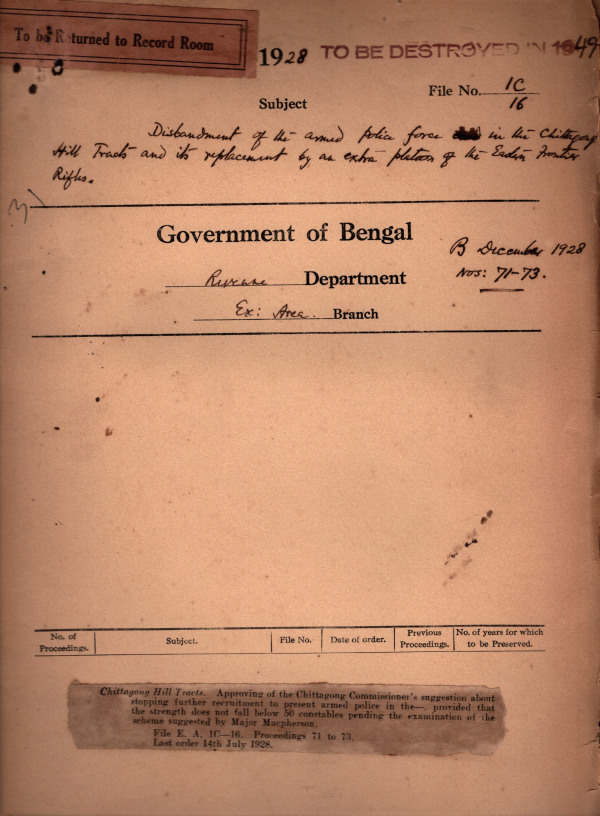 To be Returned to Record Room
1928
TO BE DESTROYED IN 1949
File No. 1C/16
Subject
Disbandment of the armed police force in the Chittagong
Hill Tracts and its replacement by an extra platoon of the Eastern Frontier
Rifles.
Government of Bengal
B December 1928
Nos: 71-73.
Revenue Department
Ex: Area. Branch
No. of Proceedings. Subject. File No. Date of order. Previous Proceedings. No. of years for which to be Preserved.
Chittagong Hill Tracts. Approving of the Chittagong Commissioner's suggestion about
stopping further recruitment to present armed police in the—. provided that
the strength does not fall below 50 constables pending the examination of the
scheme suggested by Major Macpherson.
File E. A. 1C—16. Proceedings 71 to 73.
Last order 14th July 1928.